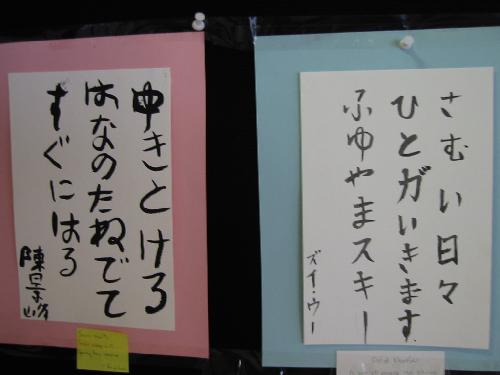 ゆきとける
はなのたねでて
すぐにはる
さむい日々
ひとガいきます
ふゆやまスキー
ズイ・ウー